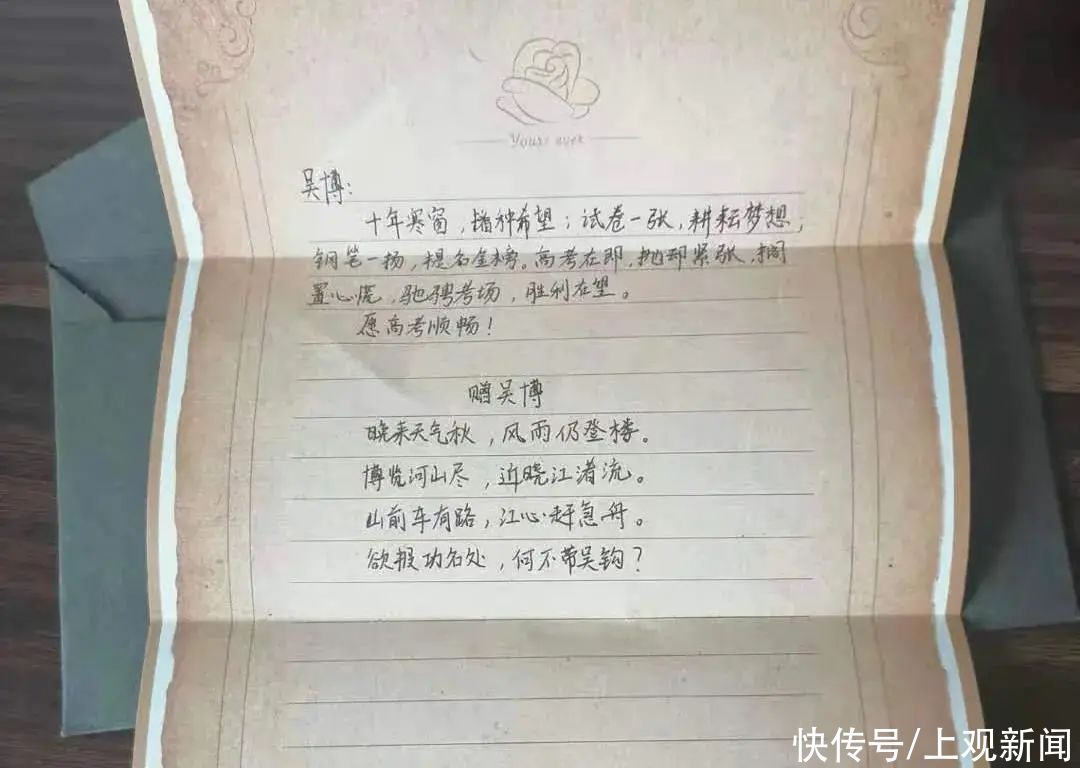 Yours ever
吴博：
十年寒窗，播种希望；试卷一张，耕耘梦想，
钢笔一扬，提名金榜。高考在即，抛却紧张，搁
置心慌，驰骋考场，胜利在望。
愿高考顺畅！
赠吴博
晚来天气秋，风雨仍登楼。
博览河山尽，近晓江渚流。
山前车有路，江心赶急舟。
欲报功名处，何不带吴钩？
快传号/上观新闻